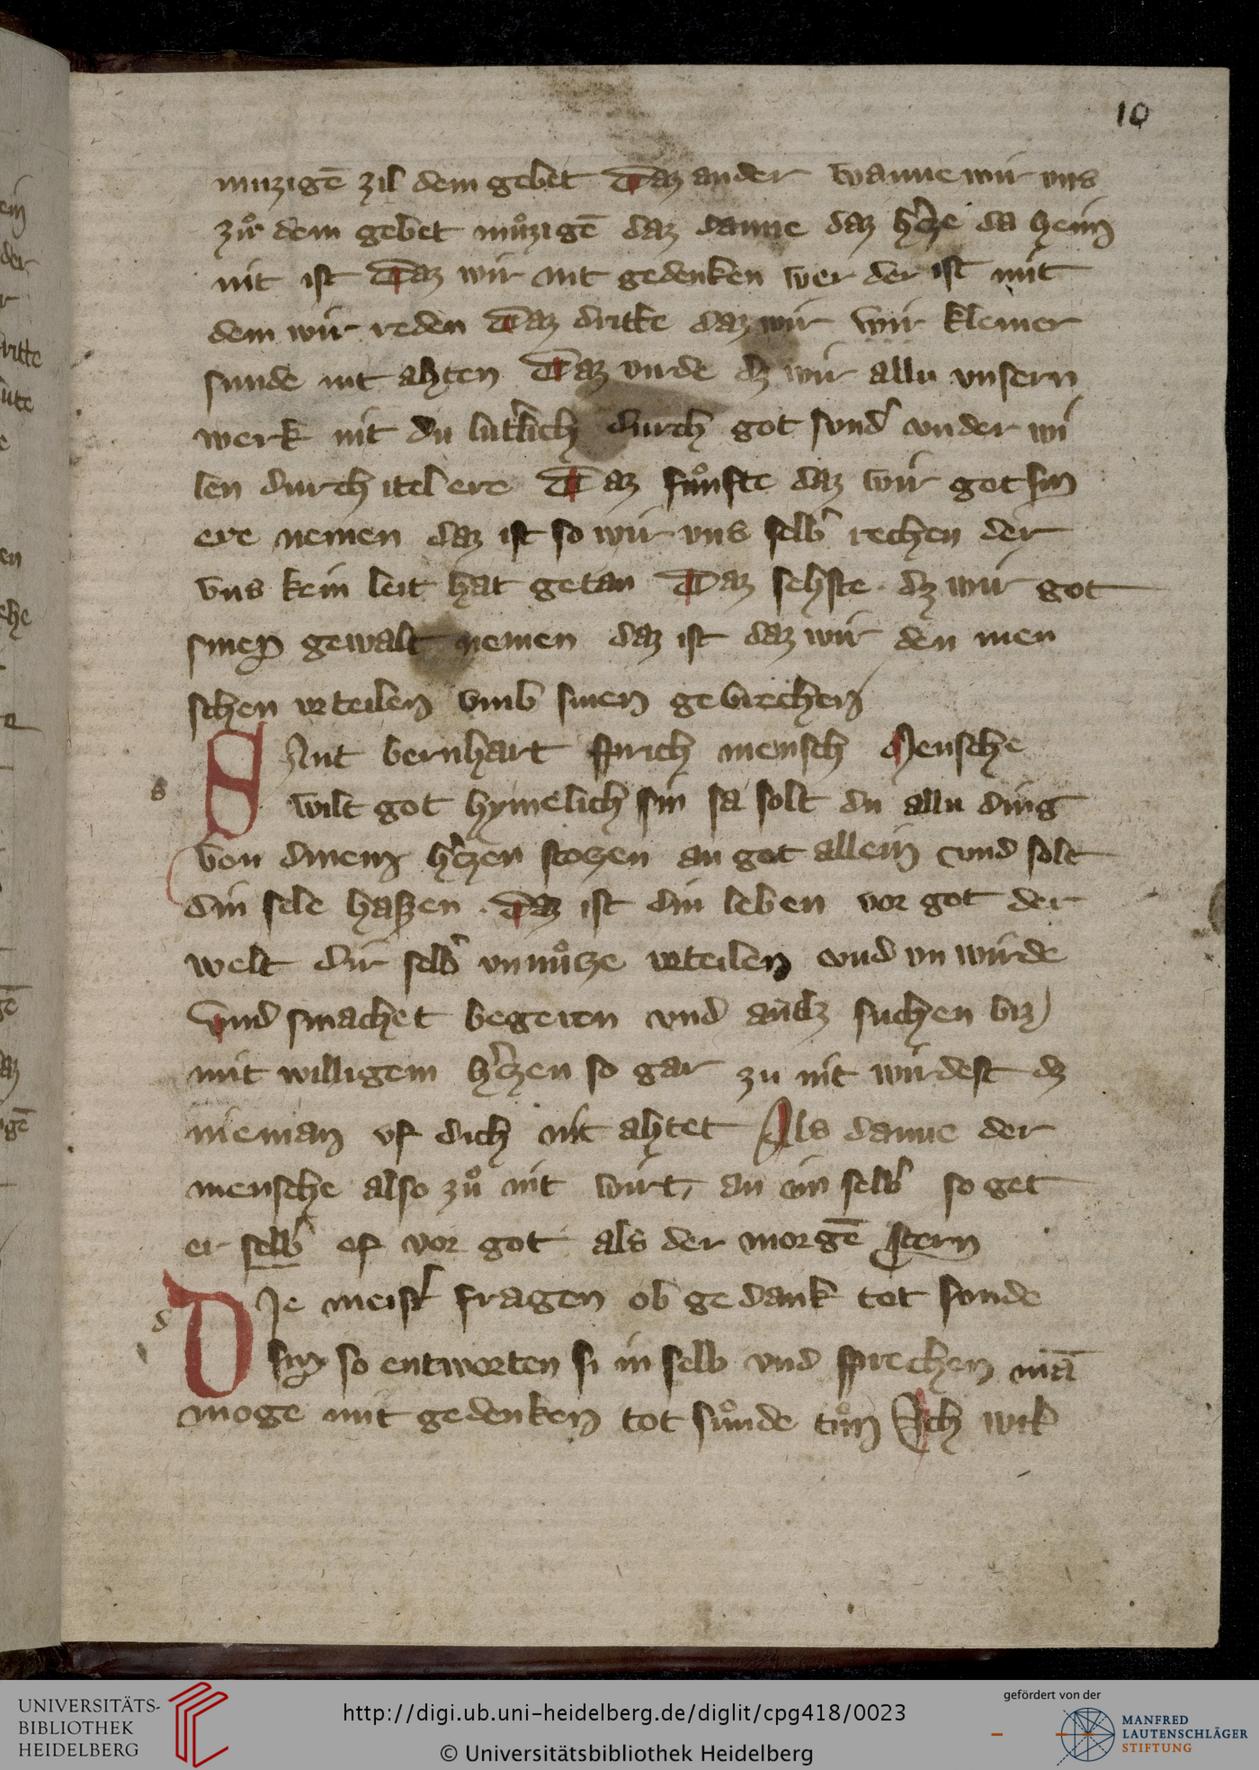 10
muzigē zil dem gebet Daz ander wanne wir vns
zuͦ dem gebet muͦzigē daz danne daz hꝰze da heim
nit ist Daz wir nit gedenken wer der ist mit
dem wir reden Daz dritte daz wir wir kleiner
sunde nit ahten Daz virde dz wir allu vnsern
werk nit du lutꝰlich durch got sundꝰ vnder wi
len durch itel ere Daz fuͦnfte daz wir got sin
ere nemen daz ist so wir vns selbꝰ rechen der
vns kein leit hat getan Daz sehste dz wir got
sinen gewalt nemen daz ist daz wir den men
schen vrteilen vmb sinen gebrechen
s
SAnt bernhart sprich mensch Mensche
wilt got hymelich sin sa solt du allu ding
von dinem hꝰzen stozen an got allein vnd solt
din sele haszen . Daz ist din leben vor got der
welt dir selbꝰ vnnuͦtze vrteilen vnd vn wirde
vnd smachet begeren vnd auch suchen biz
mit willigem hꝰzen so gar zu nit wirdest dz
nieman vf dich nit ahtet Als danne der
mensche also zuͦ nit wirt, an im selbꝰ so get
er selbꝰ vf vor got als der morgē stern
d
DIe meistꝰ fragen ob gedank tot sunde
sin so entworten si in selb vnd sprechen mā
moge mit gedenken tot suͦnde tuͦn Ich wil
UNIVERSITÄTS-
BIBLIOTHEK
HEIDELBERG
http://digi.ub.uni-heidelberg.de/diglit/cpg418/0023
© Universitätsbibliothek Heidelberg
gefördert von der
MANFRED
LAUTENSCHLÄGER
STIFTUNG